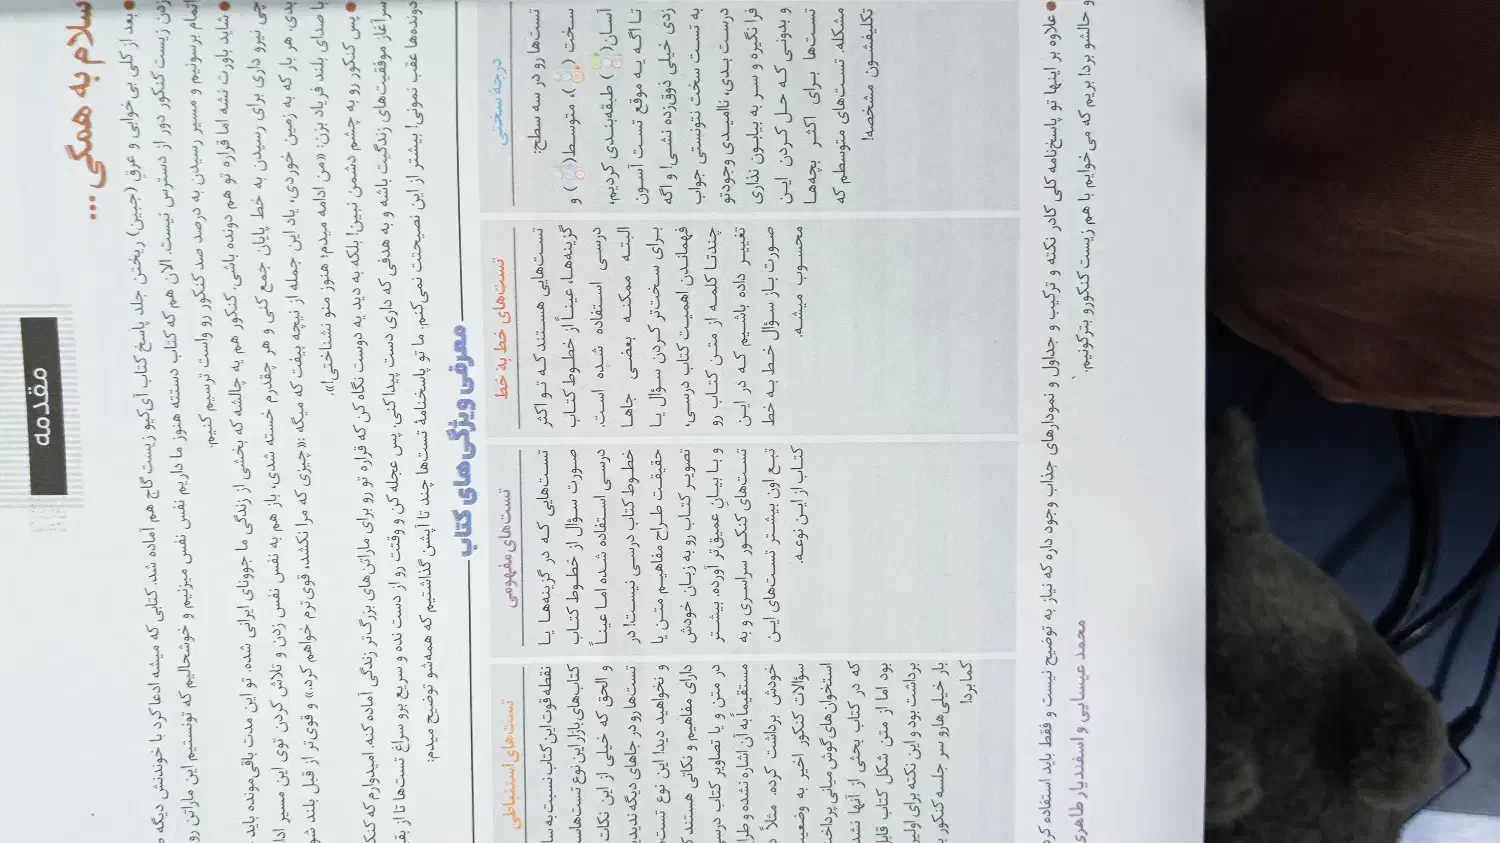 مقدمه
سلام به همگی ...
● بعد از کلی بی‌خوابی و عرق (جبین) ریختن جلد پاسخ کتاب آی‌کیو زیست گاج هم آماده شد. کتابی که میشه ادعا کرد با خوندنش دیگه
زدن زیست کنکور دور از دسترس نیست. الان هم که کتاب دستته هنوز ما داریم نفس نفس میزنیم و خوشحالیم که تونستیم این ماراتن رو
اتمام برسونیم و مسیر رسیدن به درصد صد کنکور رو واست ترسیم کنیم.
● شاید باورت نشه اما قراره تو هم دونده باشی. کنکور هم یه چالشه که بخشی از زندگی ما جوونای ایرانی شده. تو این مدت باقی‌مونده باید
چی نیرو داری برای رسیدن به خط پایان جمع کنی و هر چقدرم خسته شدی، باز هم به نفس نفس زدن و تلاش کردن توی این مسیر
بدی. هر بار که به زمین خوردی، یاد این جمله از نیچه بیفت که میگه :«چیزی که مرا نکشد، قوی‌ترم خواهم کرد.» و قوی‌تر از قبل بلند
با صدای بلند فریاد بزن: «من ادامه میدم؛ هنوز منو نشناختی!».
● پس کنکور رو به چشم دشمن نبین! بلکه به دید یه دوست نگاه کن که قراره تو رو برای ماراتن‌های بزرگ‌تر زندگی آماده کنه. امیدوارم که
سرآغاز موفقیت‌های زندگیت باشه و به هدفی که داری دست پیدا کنی. پس عجله کن و وقتت رو از دست نده و سریع برو سراغ تست‌ها تا از
دونده‌ها عقب نمونی! بیشتر از این نصیحتت نمی‌کنم. ما تو پاسخنامهٔ تست‌ها چند تا آپشن گذاشتیم که همه‌شو توضیح میدم:
معرفی ویژگی‌های کتاب
درجهٔ سختی
تست‌ها رو در سه سطح:
سخت ( )، متوسط( ) و
آسان( ) طبقه‌بندی کردیم،
تا اگه یه موقع تست آسون
زدی خیلی ذوق‌زده نشی! و اگه
به تست سخت نتونستی جواب
درست بدی، ناامیدی وجودتو
فرا نگیره و سر به بیابون نذاری
و بدونی که حل کردن این
تست‌ها برای اکثر بچه‌ها
مشکله. تست‌های متوسطم که
تکلیفشون مشخصه!
تست‌های خط به خط
تست‌هایی هستند که تو اکثر
گزینه‌ها، عیناً از خطوط کتاب
درسی استفاده شده است.
البته ممکنه بعضی جاها
برای سخت‌تر کردن سؤال یا
فهماندن اهمیت کتاب درسی،
چندتا کلمه از متن کتاب رو
تغییر داده باشیم که در این
صورت باز سؤال خط به خط
محسوب میشه.
تست‌های مفهومی
تست‌هایی که در گزینه‌ها یا
صورت سؤال از خطوط کتاب
درسی استفاده شده اما عیناً
خطوط کتاب درسی نیست! در
حقیقت طراح مفاهیم متن یا
تصویر کتاب رو به زبان خودش
و با بیان عمیق‌تر آورده. بیشتر
تست‌های کنکور سراسری و به
تبع اون بیشتر تست‌های این
کتاب از این نوعه.
تست‌های استنباطی
نقطه قوت این کتاب نسبت به
کتاب‌های بازار این نوع
و الحق که خیلی از این نکات
تست‌ها رو در جاهای دیگه
و نخواهید دید! این نوع
دارای مفاهیم و نکاتی هستند
در متن و یا تصاویر کتاب
مستقیماً به آن اشاره نشده و
خودش برداشت کرده. مثلاً
سؤالات کنکور اخیر به
استخوان‌های گوش میانی
که در کتاب بخشی از آنها
بود اما از متن شکل کتاب
برداشت بود و این نکته برای
بار خیلی‌ها رو سر جلسه کنکور
کما برد!
● علاوه بر اینها تو پاسخ‌نامه کلی کادر نکته و ترکیب و جداول و نمودارهای جذاب وجود داره که نیاز به توضیح نیست و فقط باید استفاده
و حالشو برد! بریم که می‌خوایم با هم زیست کنکورو بترکونیم.
محمد عیسایی و اسفندیار طاهری